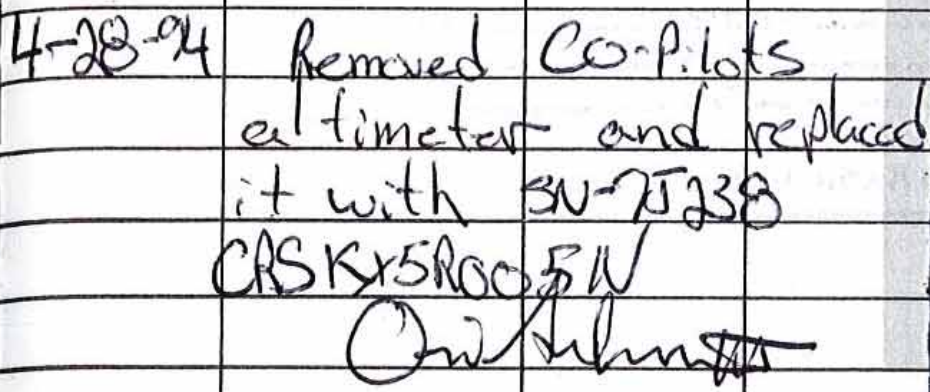 4-28-94 Removed Co-Pilots
altimeter and replaced
it with SN-7J238
CRS KX5R005N